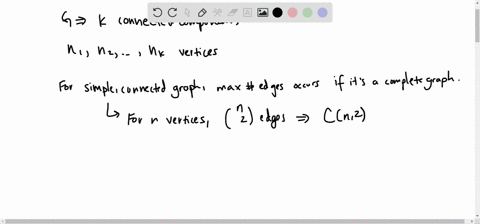 G ⇒ K connected components
n₁, n₂, ..., nₖ vertices
For simple, connected graph, max # edges occurs if it's a complete graph.
↳ For n vertices, (n 2) edges ⇒ C(n,2)